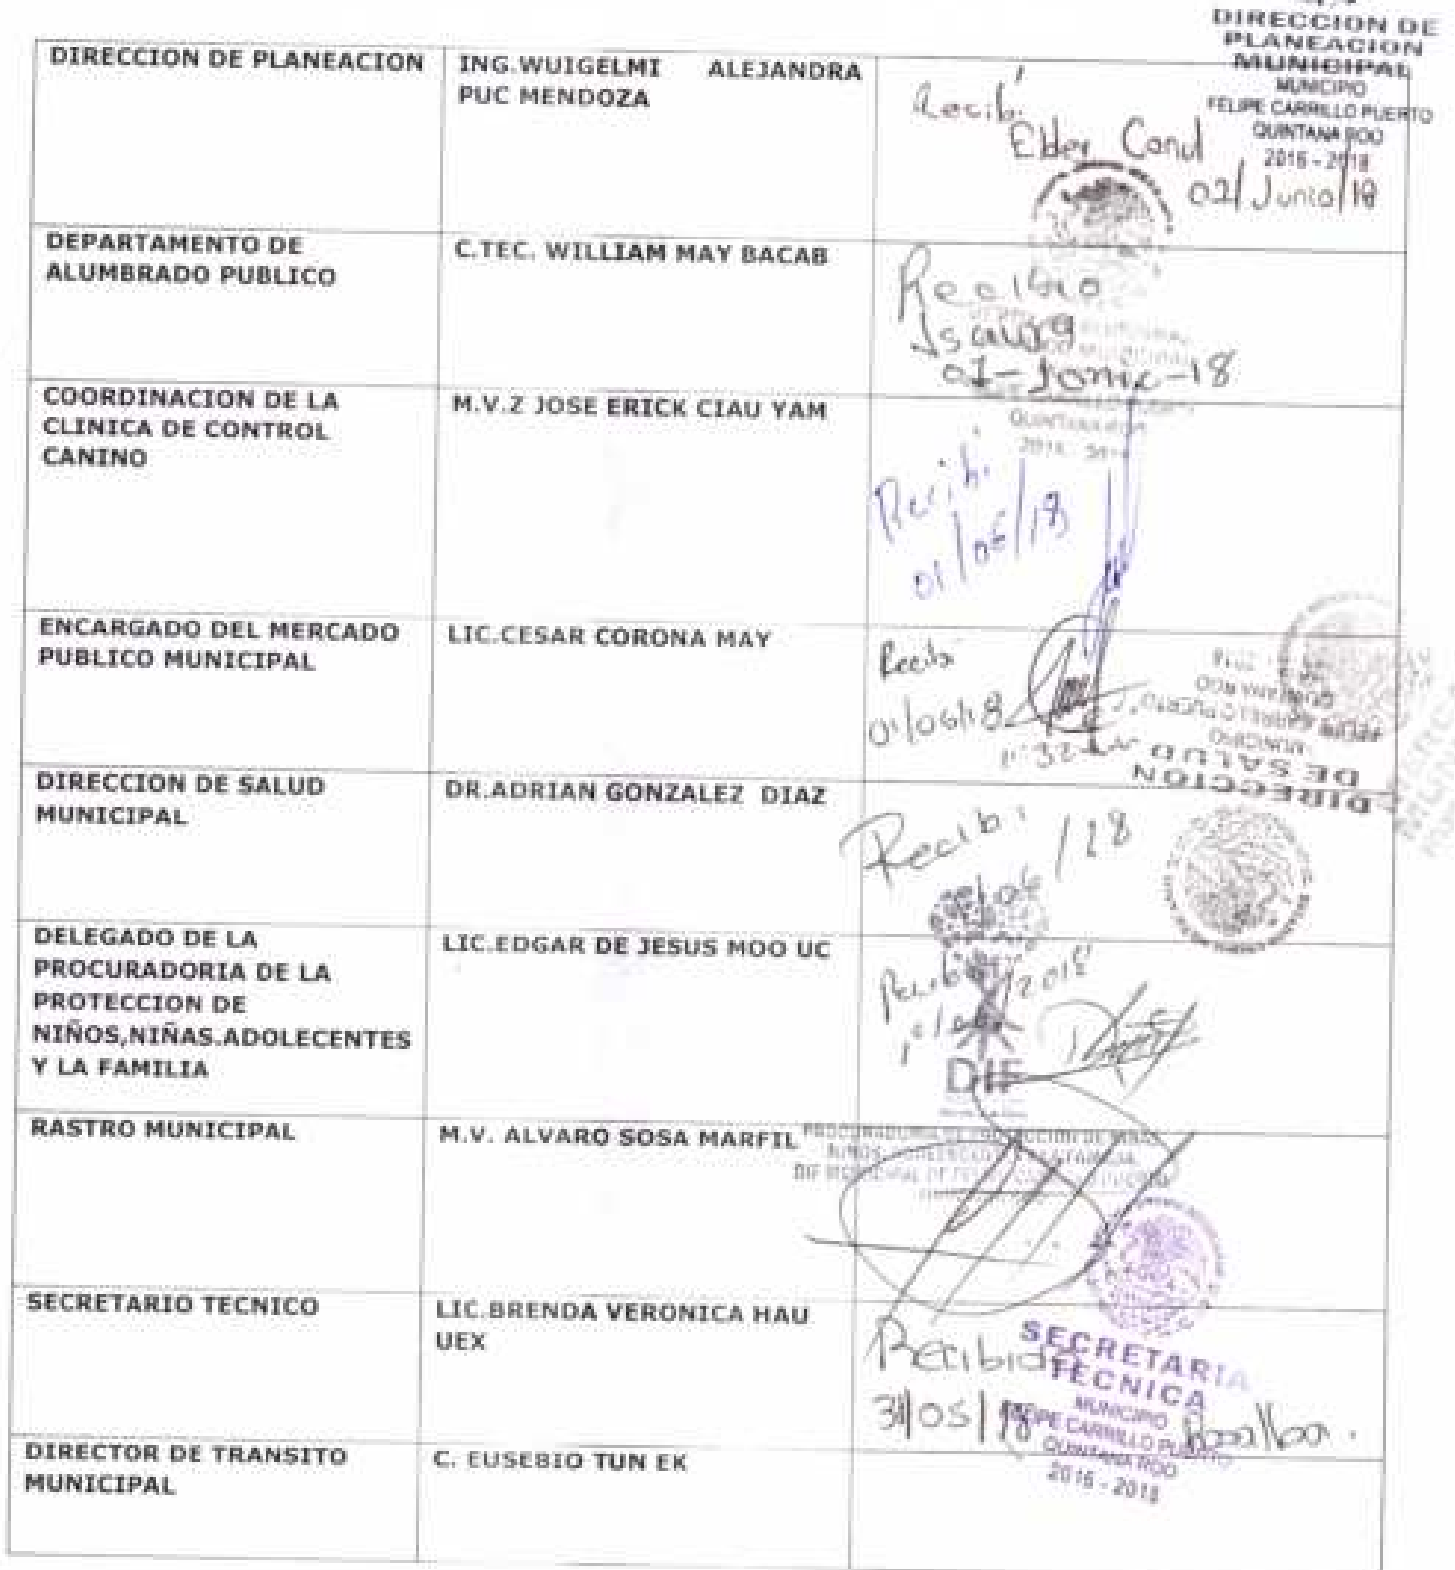 DIRECCION DE
PLANEACION
MUNICIPAL
MUNICIPIO
FELIPE CARRILLO PUERTO
QUINTANA ROO
2016 - 2018
DIRECCION DE PLANEACION
ING.WUIGELMI ALEJANDRA
PUC MENDOZA
Recibí
Elder Canul
01/Junio/18
DEPARTAMENTO DE
ALUMBRADO PUBLICO
C.TEC. WILLIAM MAY BACAB
Recibio
Isaura
01-Junio-18
QUINTANA ROO
COORDINACION DE LA
CLINICA DE CONTROL
CANINO
M.V.Z JOSE ERICK CIAU YAM
Recibi
01/06/18
ENCARGADO DEL MERCADO
PUBLICO MUNICIPAL
LIC.CESAR CORONA MAY
Recibi
01/06/18
DIRECCION
DE SALUD
MUNICIPIO
FELIPE CARRILLO PUERTO
QUINTANA ROO
DIRECCION DE SALUD
MUNICIPAL
DR.ADRIAN GONZALEZ DIAZ
Recibi
/06/18
DELEGADO DE LA
PROCURADORIA DE LA
PROTECCION DE
NIÑOS,NIÑAS.ADOLECENTES
Y LA FAMILIA
LIC.EDGAR DE JESUS MOO UC
Recibi
/2018
DIF
RASTRO MUNICIPAL
M.V. ALVARO SOSA MARFIL
SECRETARIO TECNICO
LIC.BRENDA VERONICA HAU
UEX
Recibido
31/05/18
SECRETARIA
TECNICA
MUNICIPIO
FELIPE CARRILLO PUERTO
QUINTANA ROO
2016 - 2018
DIRECTOR DE TRANSITO
MUNICIPAL
C. EUSEBIO TUN EK